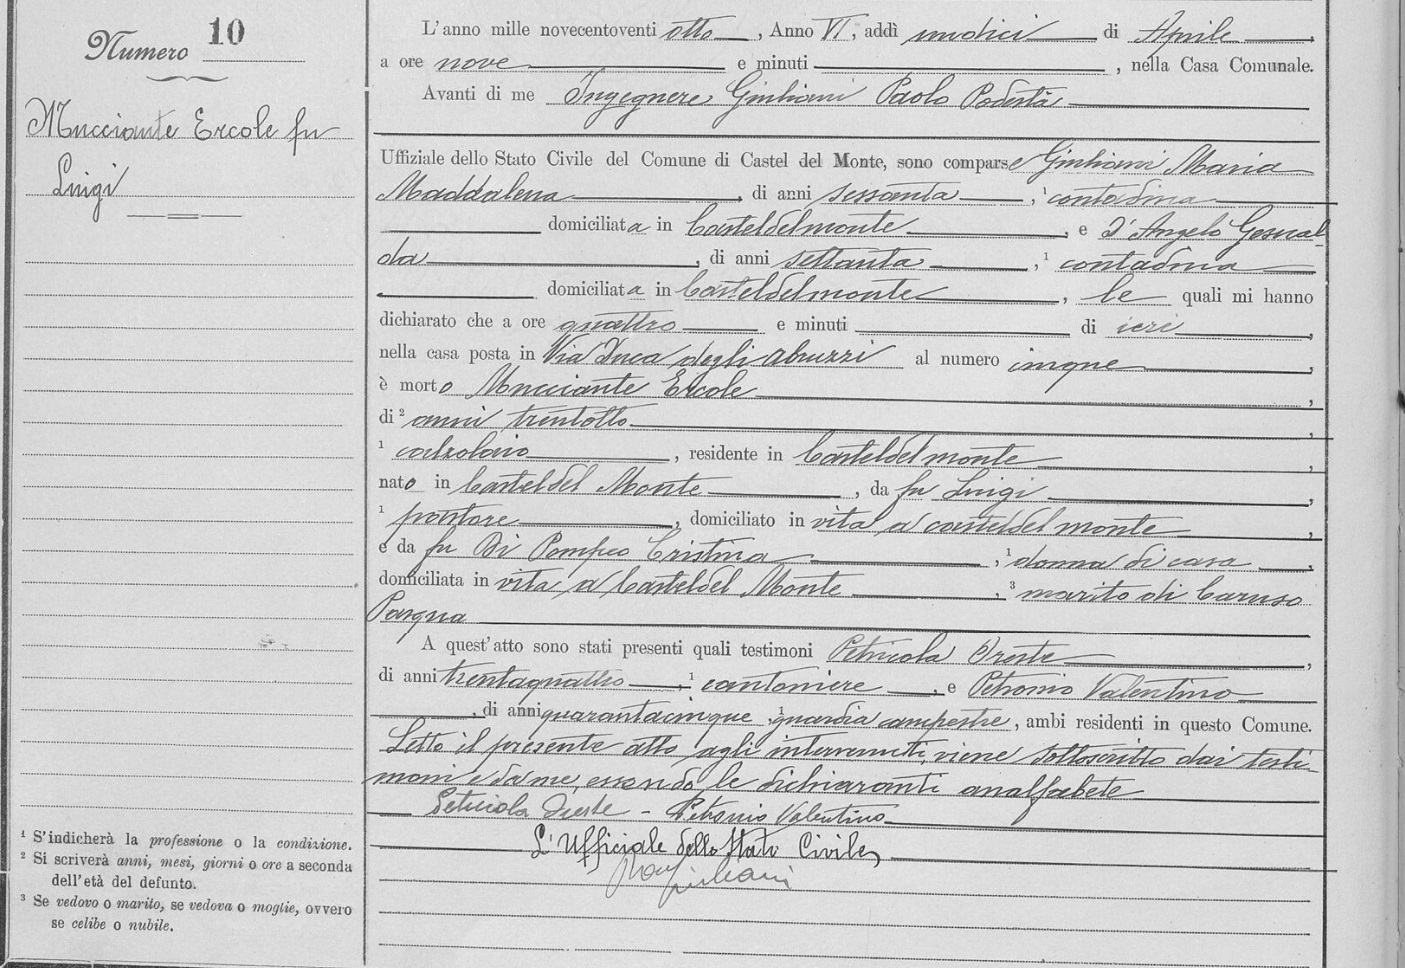 Numero 10
Mucciante Ercole fu
Luigi
L'anno mille novecentoventi otto, Anno VI, addì undici di Aprile,
a ore nove e minuti, nella Casa Comunale.
Avanti di me Ingegnere Giuliani Paolo Podestà
Uffiziale dello Stato Civile del Comune di Castel del Monte, sono comparse Giuliani Maria
Maddalena, di anni sessanta, ¹ contadina
domiciliata in Casteldelmonte, e D'Angelo Gesual
da, di anni settanta, ¹ contadina
domiciliata in Casteldelmonte, le quali mi hanno
dichiarato che a ore quattro e minuti di ieri,
nella casa posta in Via Duca degli Abruzzi al numero cinque,
è morto Mucciante Ercole,
di ² anni trentotto,
¹ calzolaio, residente in Casteldelmonte,
nato in Casteldel Monte, da fu Luigi,
¹ pastore, domiciliato in vita a casteldelmonte,
e da fu Di Pompeo Cristina, ¹ donna di casa,
domiciliata in vita a Casteldel Monte, ³ marito di Caruso
Pasqua
A quest'atto sono stati presenti quali testimoni Petricola Oreste,
di anni trentaquattro, ¹ cantoniere, e Petronio Valentino
, di anni quarantacinque, ¹ guardia campestre, ambi residenti in questo Comune.
Letto il presente atto agli intervenuti, viene sottoscritto dai testi-
moni e da me, essendo le dichiaranti analfabete
Petricola Oreste - Petronio Valentino
L'Ufficiale dello Stato Civile
Giuliani
¹ S'indicherà la professione o la condizione.
² Si scriverà anni, mesi, giorni o ore a seconda
dell'età del defunto.
³ Se vedovo o marito, se vedova o moglie, ovvero
se celibe o nubile.